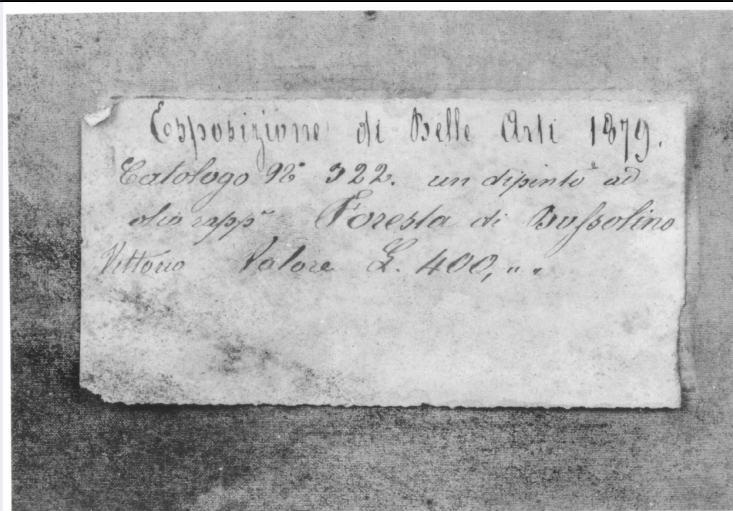 Esposizione di Belle Arti 1879.
Catologo N° 322. un dipinto ad
olio rapp.te Foresta di Bussolino
Vittorio Valore L. 400, „ „